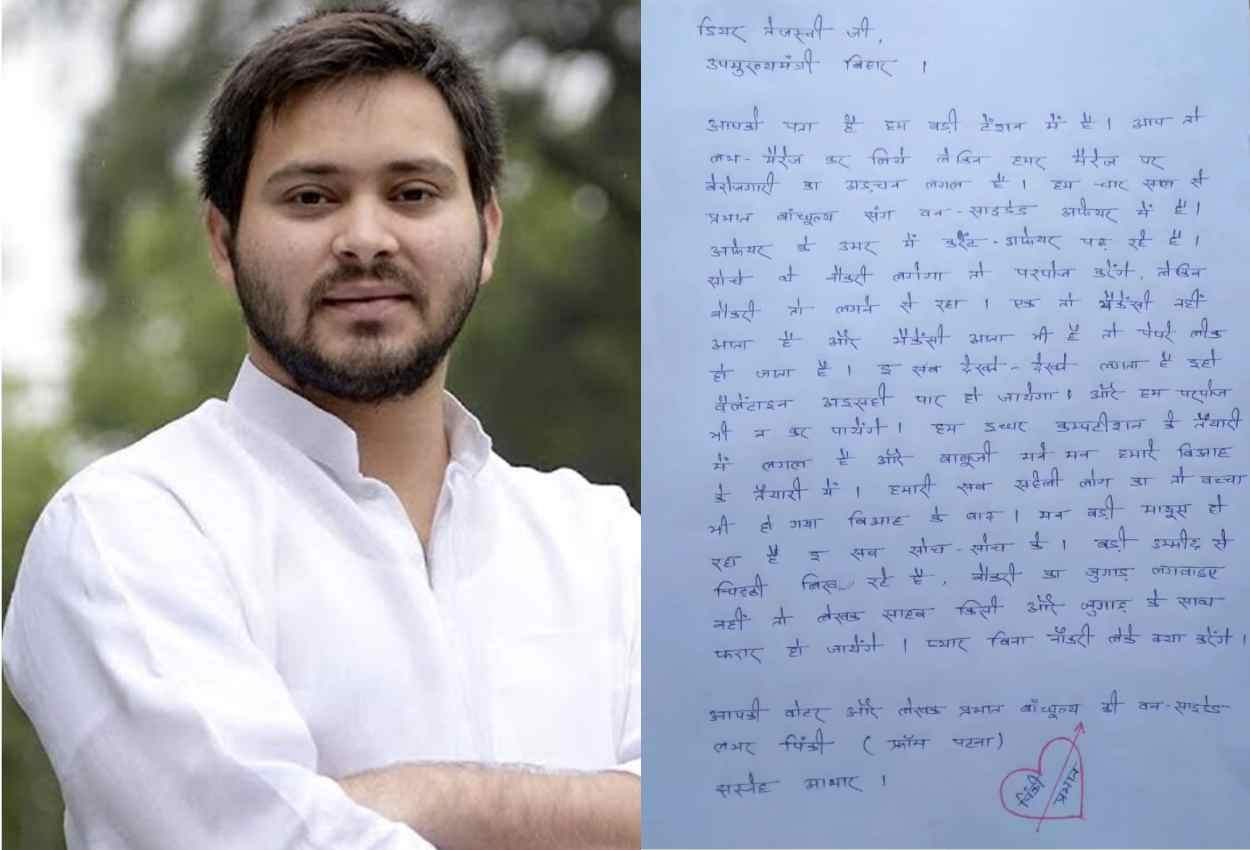 डियर तेजस्वी जी,
उपमुख्यमंत्री बिहार ।
आपको पता है हम बड़ी टेंशन में है । आप तो
लभ-मैरेज कर लिये लेकिन हमर मैरेज पर
बेरोजगारी का अड़चन लगल है । हम चार साल से
प्रभात बाँधुल्य संग वन-साइडेड अफेयर में है ।
अफेयर के उमर में करेंट-अफेयर पढ़ रहे है ।
सोचे थे नौकरी लगेगा तो परपोज करेंगे, लेकिन
नौकरी तो लगने से रहा । एक तो भैकेंसी नहीं
आता है और भैकेंसी आता भी है तो पेपरे लीक
हो जाता है । इ सब देखते-देखते लगता है इहो
वैलेंटाइन अइसही पार हो जायेगा । और हम परपोज
भी न कर पायेंगे । हम इधर कम्पटीशन के तैयारी
में लगल है और बाबूजी मने मन हमारे बिआह
के तैयारी में । हमारी सब सहेली लोग का तो बच्चा
भी हो गया बिआह के बाद । मन बड़ी मायूस हो
रहा है इ सब सोच-सोच के । बड़ी उम्मीद से
चिट्ठी लिख रहे है, नौकरी का जुगाड़ लगवाइए
नहीं तो लेखक साहब किसी और जुगाड़ के साथ
फरार हो जायेंगे । प्यार बिना नौकरी लेके क्या करेंगे ।
आपकी वोटर और लेखक प्रभात बाँधुल्य की वन-साइडेड
लभर पिंकी ( फ्रॉम पटना)
सस्नेह आभार ।
पिंकी
प्रभात